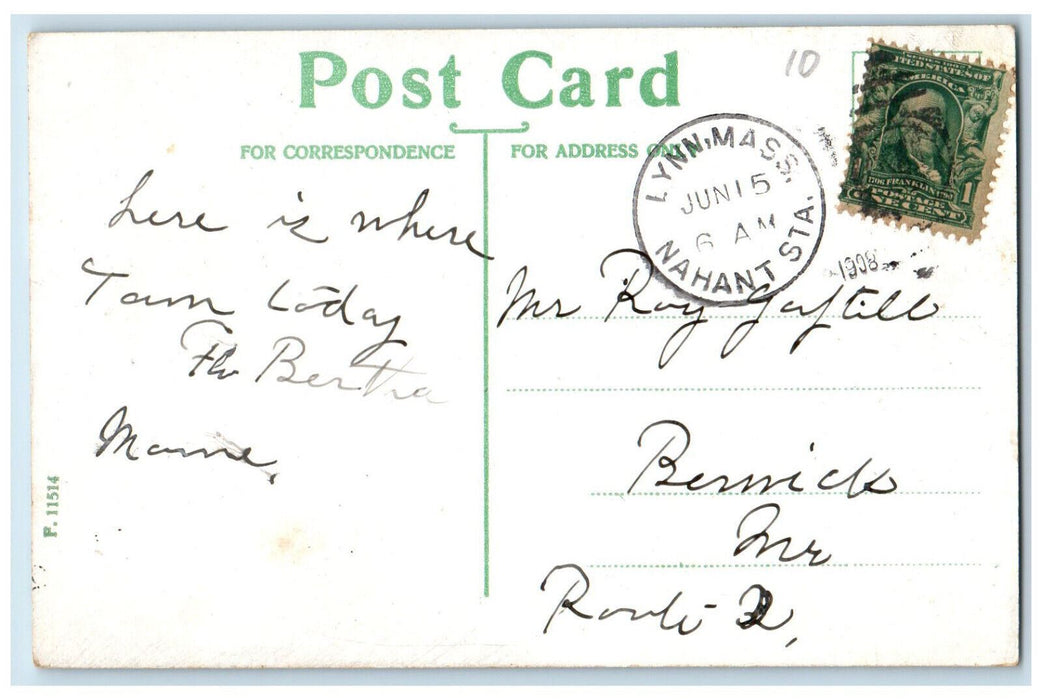 Post Card
10
FOR CORRESPONDENCE
FOR ADDRESS ONLY
UNITED STATES OF
AMERICA
1706 FRANKLIN 1790
POSTAGE
ONE CENT
1
LYNN, MASS.
JUN 15
6 AM
NAHANT STA.
1908
here is where
I am today
Flo Bertha
Mame,
Mr Roy Gaftill
Berwick
Me
Route 2,
P. 11514